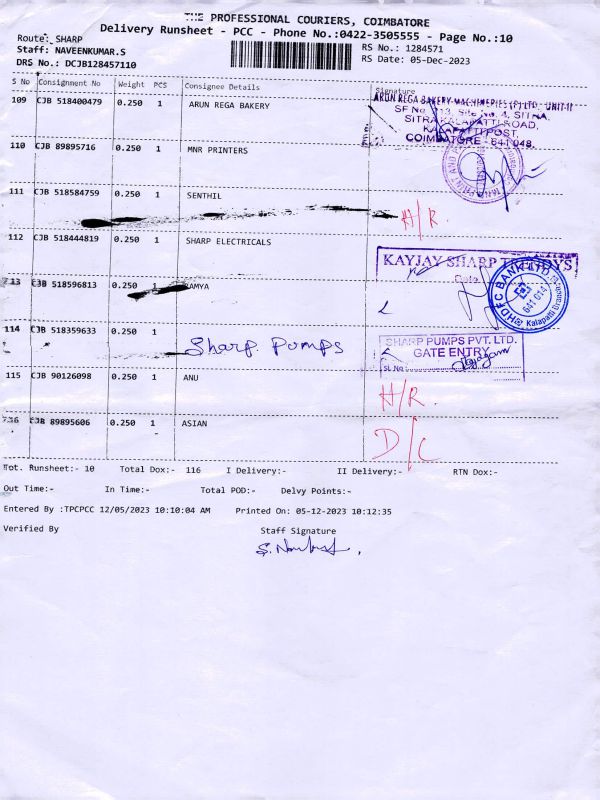 THE PROFESSIONAL COURIERS, COIMBATORE
Delivery Runsheet - PCC - Phone No.:0422-3505555 - Page No.:10
Route: SHARP
RS No.: 1284571
Staff: NAVEENKUMAR.S
RS Date: 05-Dec-2023
DRS No.: DCJB128457110
S No Consignment No Weight PCS Consignee Details Signature
109 CJB 518400479 0.250 1 ARUN REGA BAKERY
ARUN REGA BAKERY MACHINERIES (P) LTD., UNIT-II
SITRA
KALAPATTI ROAD,
KALAPATTI POST,
COIMBATORE - 641 048.
110 CJB 89895716 0.250 1 MNR PRINTERS
111 CJB 518584759 0.250 1 SENTHIL
H/R.
112 CJB 518444819 0.250 1 SHARP ELECTRICALS
KAYJAY SHARP
Date
HDFC BANK LTD
641 014
Kalapatti Branch
113 CJB 518596813 0.250 1 RAMYA
114 CJB 518359633 0.250 1
Sharp Pumps
SHARP PUMPS PVT. LTD.
GATE ENTRY
SL No
115 CJB 90126098 0.250 1 ANU
H/R.
116 CJB 89895606 0.250 1 ASIAN
D/C
Tot. Runsheet:- 10 Total Dox:- 116 I Delivery:- II Delivery:- RTN Dox:-
Out Time:- In Time:- Total POD:- Delvy Points:-
Entered By :TPCPCC 12/05/2023 10:10:04 AM Printed On: 05-12-2023 10:12:35
Verified By Staff Signature